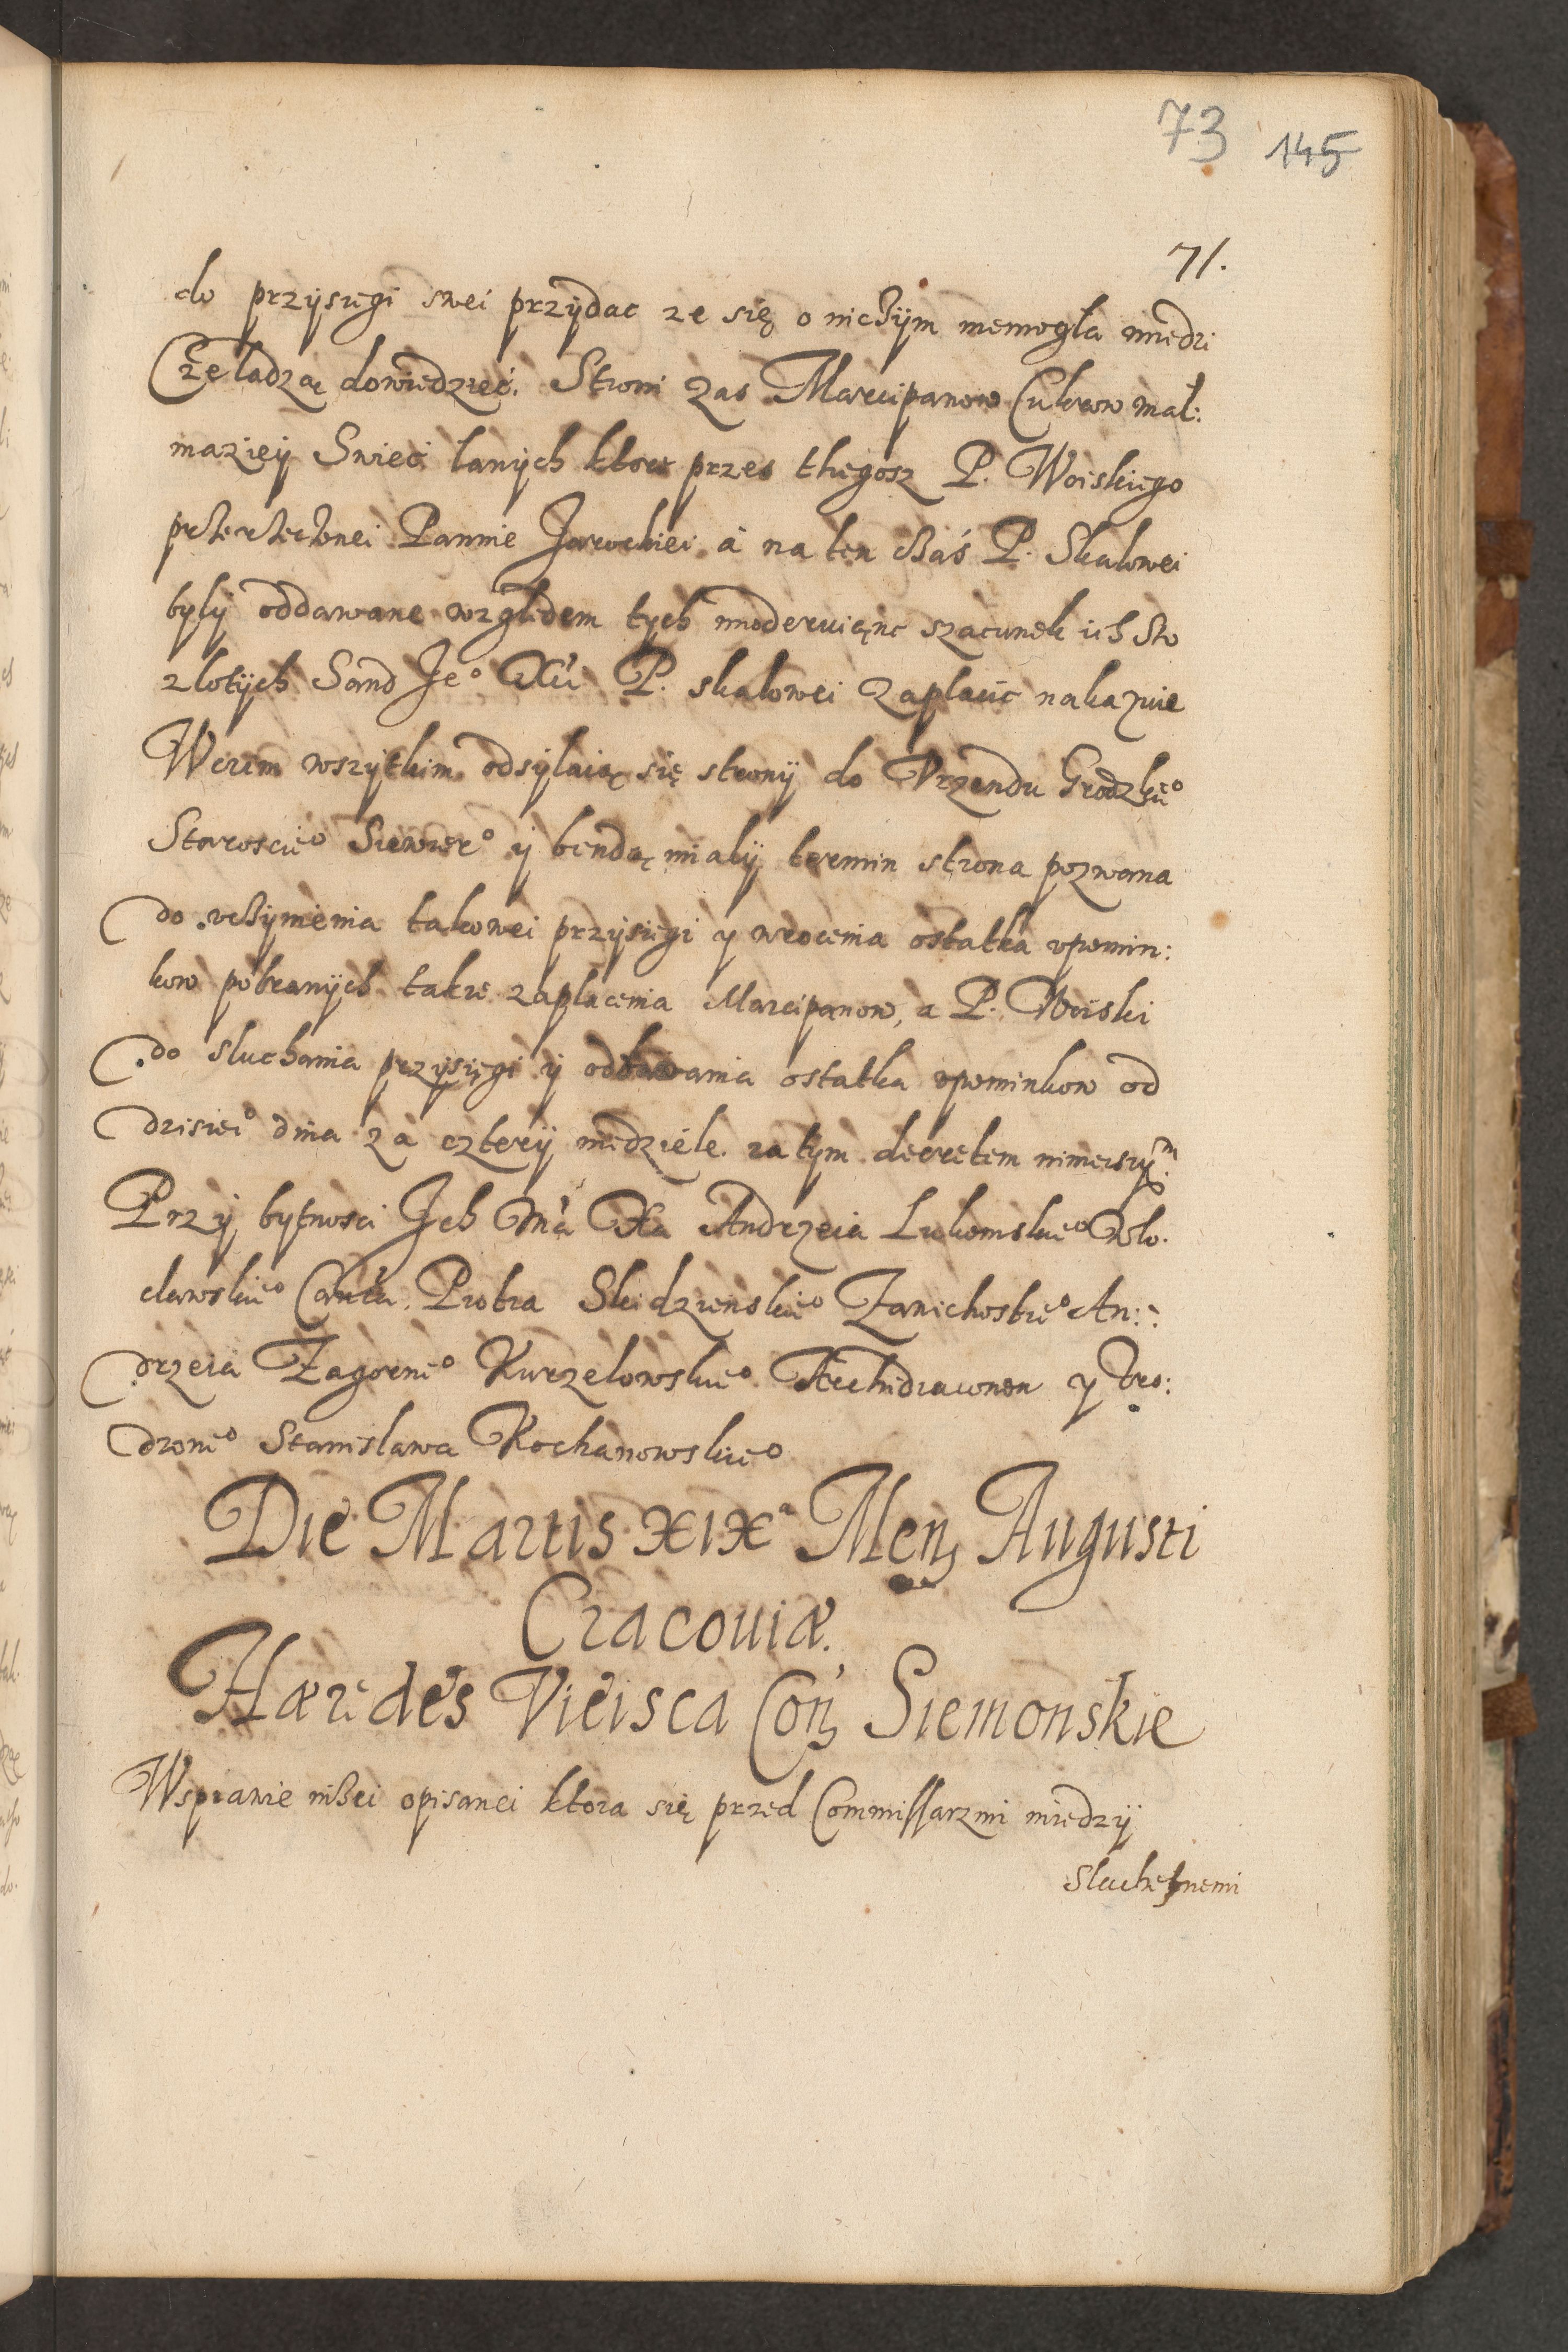 73 145
71.
do przysięgi swei przydac ze się o niczym niemogła miedzi
Czeladzą dowiedzieć. Stroni zas Marcipanow Cukrow mal:
maziey Swieci lanych ktore przes thegosz P. Woiskiego
przerzeczonei Pannie Jarockiei a na ten czas P. Skalowei
były oddawane względem tych moderuiąnc szacunek ich sto
zlotych Sand Je° P. skalowei zaplacic nakazuie
Wczem wszytkim odsylaią się strony do Vrzendu Grodzkie°
Staroscie° Siewier° y bendą miały termin strona pozwana
do vczynienia takowei przysięgi y wrocenia ostatka vpomin:
kow pobranych takze zaplacenia Marcipanow, a P. Woiski
do sluchania przysięgi y oddawania ostatka vpominkow od
dzisiei° dnia za cztery niedziele za tym decretem nineiszym.
Przy bytnosci Jch Mci Xa Andrzeia Lukomskie° Wlo.
clawskie° Piotra Skidzienskie° Zawichostie° An:
drzeia Zagorne° Kurzelowskie° Archidiaconow y Vro:
dzone° Stanislawa Kochanowskie°
Die Martis XIXa Mens Augusti
Cracouiæ.
Hæredes Vieisca Con Siemonskie
Wsprawie niżei opisanei ktora się przed Commissarzmi miedzy
Slachetnemi